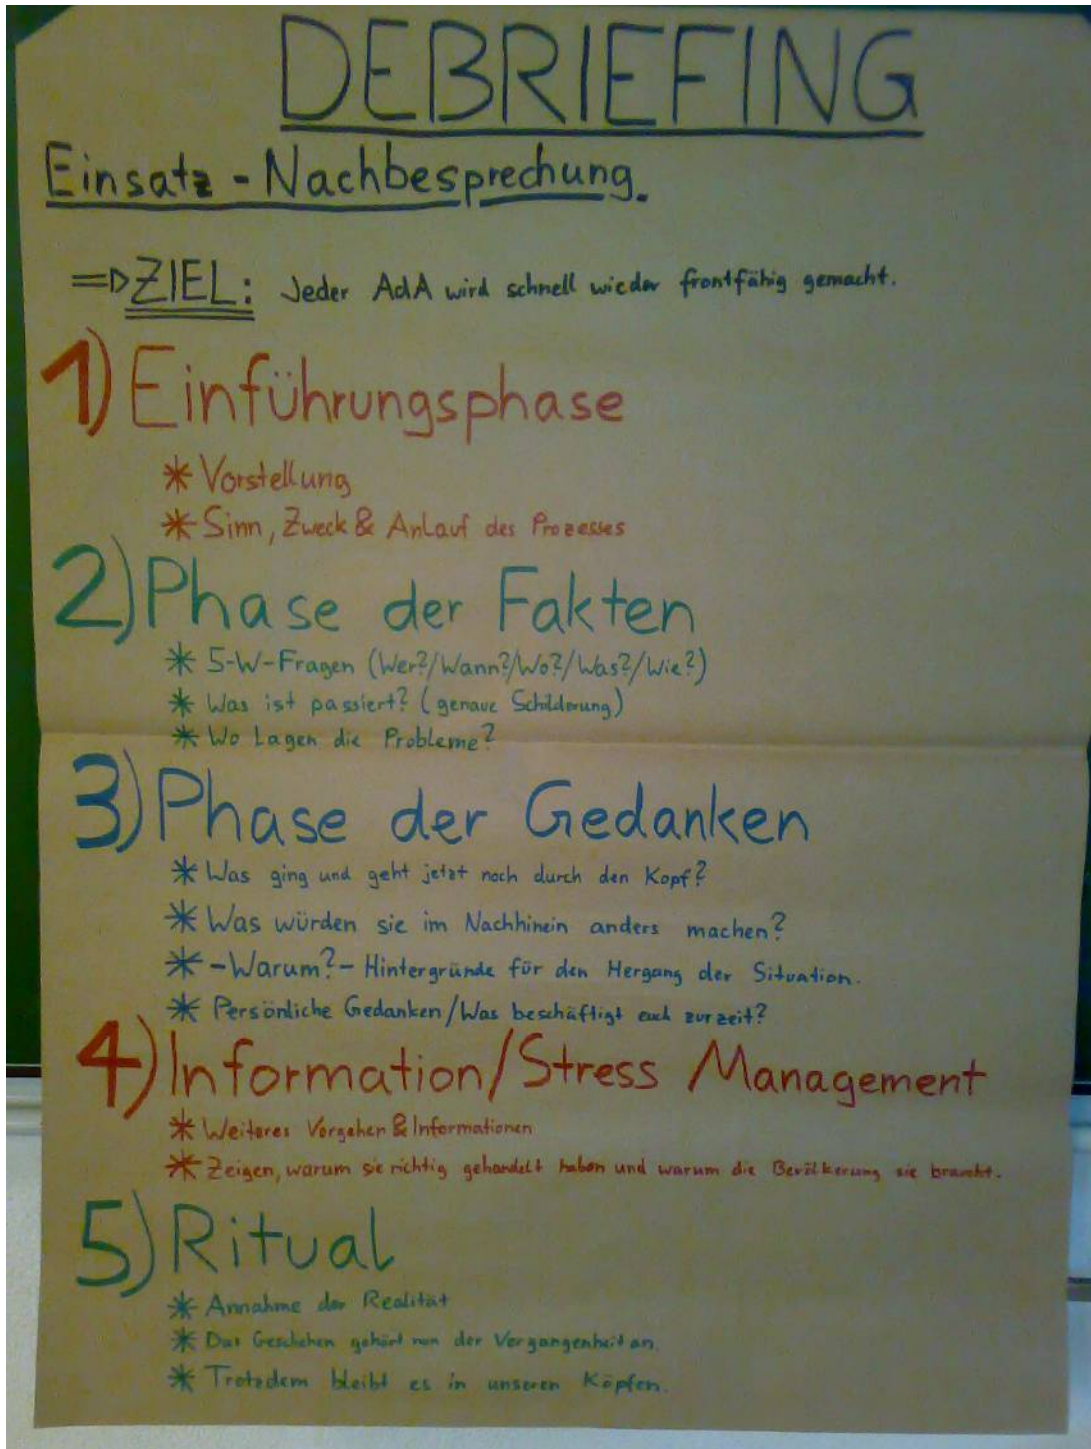 DEBRIEFING
Einsatz - Nachbesprechung.
⇒ ZIEL: Jeder AdA wird schnell wieder frontfähig gemacht.
1) Einführungsphase
* Vorstellung
* Sinn, Zweck & Anlauf des Prozesses
2) Phase der Fakten
* 5-W-Fragen (Wer?/Wann?/Wo?/Was?/Wie?)
* Was ist passiert? (genaue Schilderung)
* Wo Lagen die Probleme?
3) Phase der Gedanken
* Was ging und geht jetzt noch durch den Kopf?
* Was würden sie im Nachhinein anders machen?
* -Warum?- Hintergründe für den Hergang der Situation.
* Persönliche Gedanken/Was beschäftigt euch zurzeit?
4) Information/Stress Management
* Weiteres Vorgehen & Informationen
* Zeigen, warum sie richtig gehandelt haben und warum die Bevölkerung sie braucht.
5) Ritual
* Annahme der Realität
* Das Geschehen gehört nun der Vergangenheit an.
* Trotzdem bleibt es in unseren Köpfen.